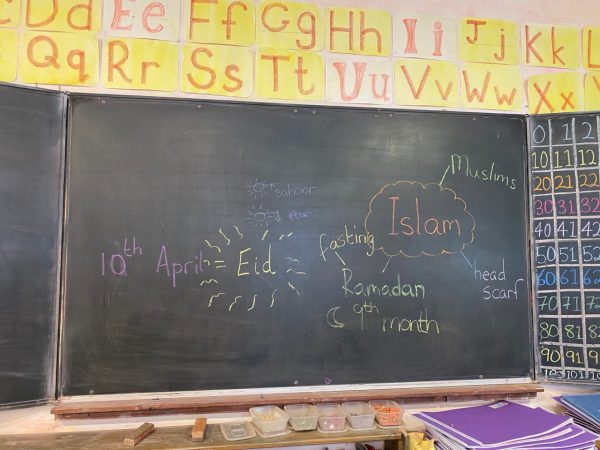 Dd Ee Ff Gg Hh Ii Jj Kk L
Qq Rr Ss Tt Uu Vv Ww Xx
Muslims
sahoor
iftar
Islam
fasting
10th April = Eid
Ramadan
head
scarf
9th
month
0 1 2
10 11 12
20 21 22
30 31 32
40 41 42
50 51 52
60 61 62
70 71 72
80 81 82
90 91 9